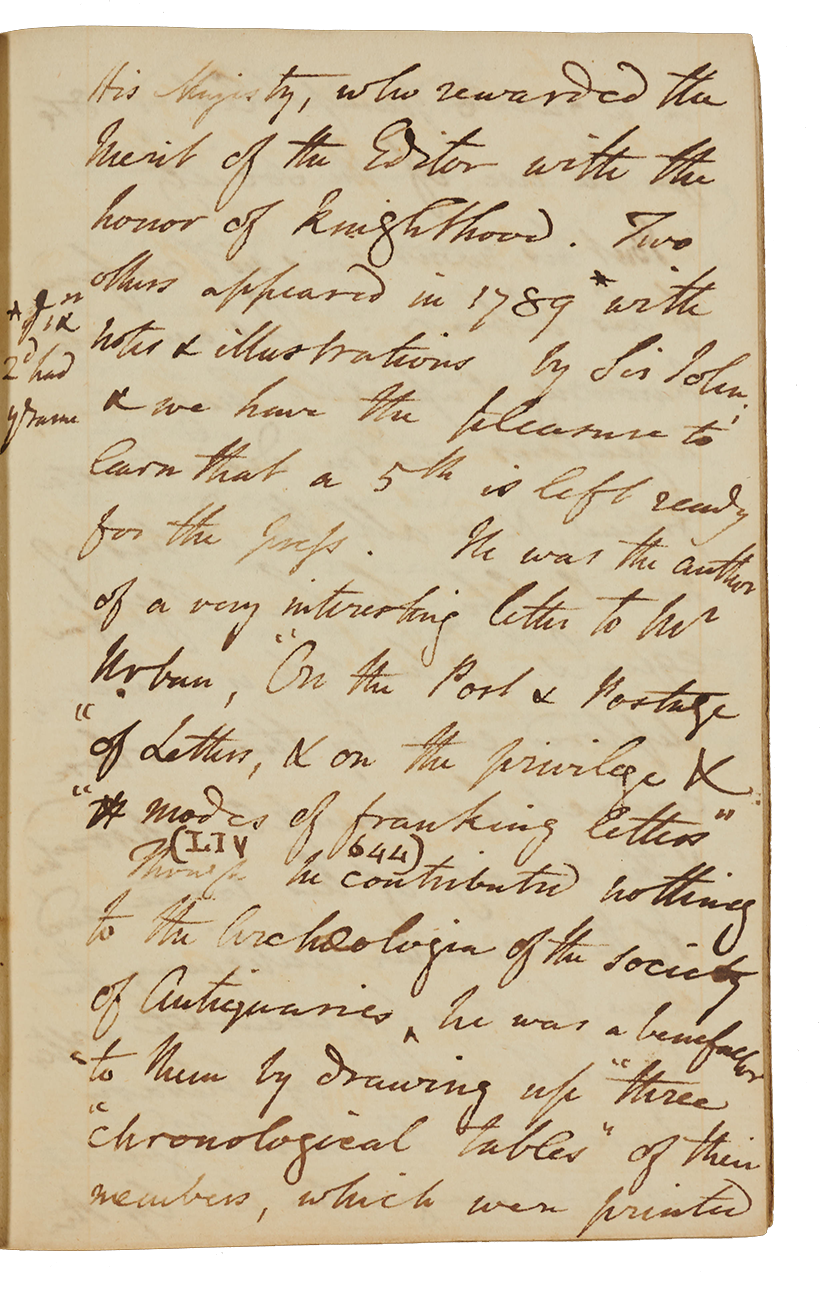 His Majesty, who rewarded the
Merit of the Editor with the
honor of knighthood. Two
others appeared in 1789 * with
notes & illustrations by Sir John,
& we have the pleasure to
learn that a 5th is left ready
for the press. He was the author
of a very interesting letter to Mr
Urban, "On the Post & Postage
"of Letters, & on the privilege &
" modes of franking letters"
(LIV 644)
Though he contributed nothing
to the Archæologia of the society
of Antiquaries, he was a benefactor
to them by drawing up "three
"chronological tables" of their
members, which were printed
*
2d had